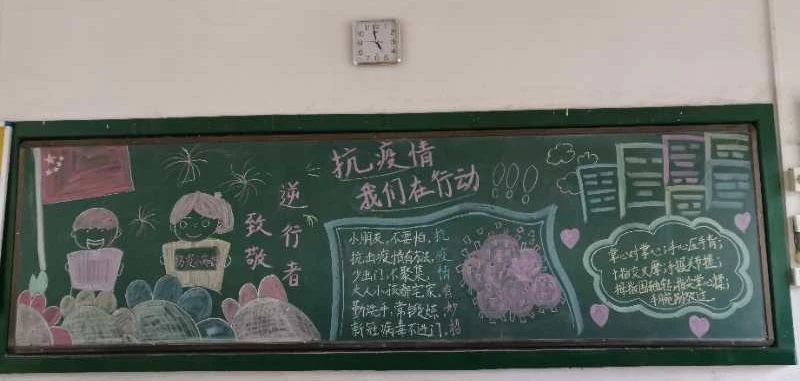 抗疫情
我们在行动!!!
致敬
逆行者
小朋友,不要怕,
抗击疫情有方法,
少出门,不聚集,
大人小孩都宅家,
勤洗手,常锻炼,
新冠病毒不进门,
抗疫情有妙招
掌心对掌心;手心压手背;
十指交叉摩;手握关节搓;
拇指围轴转;指尖掌心揉;
手腕别放过.